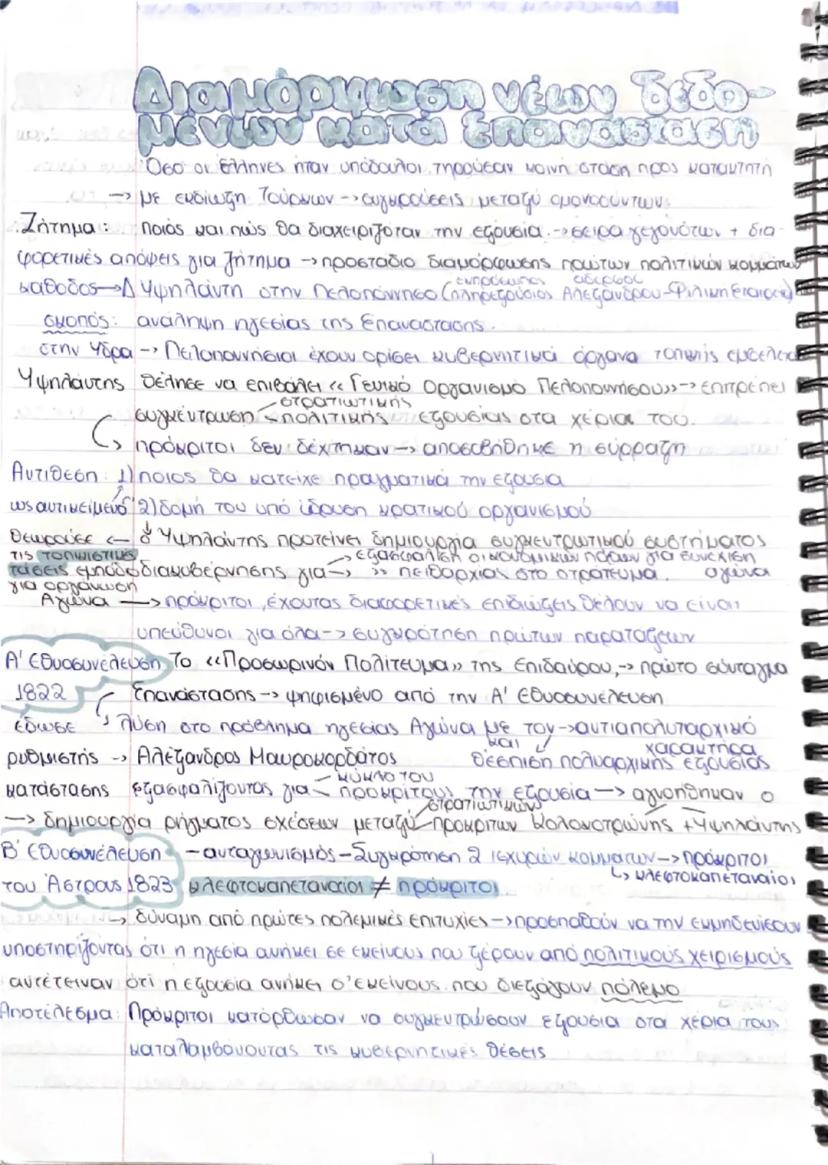 Διαμόρφωση νέων δεδο-
μένων κατά Επανάσταση
Όσο οι Έλληνες ήταν υπόδουλοι τηρούσαν κοινή στάση προς κατακτητή
→ με εκδίωξη Τούρκων → συγκρούσεις μεταξύ ομονοούντων
Ζήτημα: ποιός και πώς θα διαχειριζόταν την εξουσία → σειρά γεγονότων + δια-
φορετικές απόψεις για ζήτημα → προστάδιο διαμόρφωσης πρώτων πολιτικών κομμάτων
κάθοδος → Δ Υψηλάντη στην Πελοπόννησο (πληρεξούσιος εκπρόσωπος αδερφού Αλεξάνδρου - Φιλική Εταιρεία)
σκοπός: ανάληψη ηγεσίας της Επανάστασης.
στην Ύδρα → Πελοποννήσιοι έχουν ορίσει κυβερνητικά όργανα τοπικής εμβέλεια
Υψηλάντης θέλησε να επιβάλει «Γενικό Οργανισμό Πελοποννήσου» → επιτρέπει
συγκέντρωση στρατιωτικής πολιτικής εξουσίας στα χέρια του.
→ πρόκριτοι δεν δέχτηκαν → αποσοβήθηκε η σύρραξη
Αντίθεση: 1) ποιος θα κατείχε πραγματικά την εξουσία
ως αντικείμενο 2) δομή του υπό ίδρυση κρατικού οργανισμού
θεωρούσε ← ο Υψηλάντης προτείνει δημιουργία συγκεντρωτικού συστήματος
τις τοπικιστικές → εξασφάλιση οικονομικών πόρων για συνέχιση
τάσεις εμπόδιο διακυβέρνησης για → » πειθαρχίας στο στράτευμα. αγώνα
για οργάνωση
Αγώνα → πρόκριτοι, έχοντας διαφορετικές επιδιώξεις θέλουν να είναι
υπεύθυνοι για όλα → συγκρότηση πρώτων παρατάξεων
Α' Εθνοσυνέλευση Το «Προσωρινόν Πολίτευμα» της Επιδαύρου, → πρώτο σύνταγμα
1822 Επανάστασης → ψηφισμένο από την Α' Εθνοσυνέλευση
έδωσε λύση στο πρόβλημα ηγεσίας Αγώνα με τον → αντιαπολυταρχικό
και χαρακτήρα
ρυθμιστής → Αλέξανδρος Μαυροκορδάτος θέσπιση πολυαρχικής εξουσίας
κατάστασης εξασφαλίζοντας για κύκλο του προκρίτους την εξουσία → αγνοήθηκαν ο
→ δημιουργία ρήγματος σχέσεων μεταξύ στρατιωτικών προκρίτων Κολοκοτρώνης + Υψηλάντης
Β' Εθνοσυνέλευση - ανταγωνισμός - Συγκρότηση 2 ισχυρών κομμάτων → πρόκριτοι
↳ κλεφτοκαπεταναίοι
του Άστρους 1823 κλεφτοκαπεταναίοι ≠ πρόκριτοι
→ δύναμη από πρώτες πολεμικές επιτυχίες → προσπαθούν να την εκμηδενίσουν
υποστηρίζοντας ότι η ηγεσία ανήκει σε εκείνους που ξέρουν από πολιτικούς χειρισμούς
αντέτειναν ότι η εξουσία ανήκει σ'εκείνους που διεξάγουν πόλεμο
Αποτέλεσμα: Πρόκριτοι κατόρθωσαν να συγκεντρώσουν εξουσία στα χέρια τους
καταλαμβάνοντας τις κυβερνητικές θέσεις